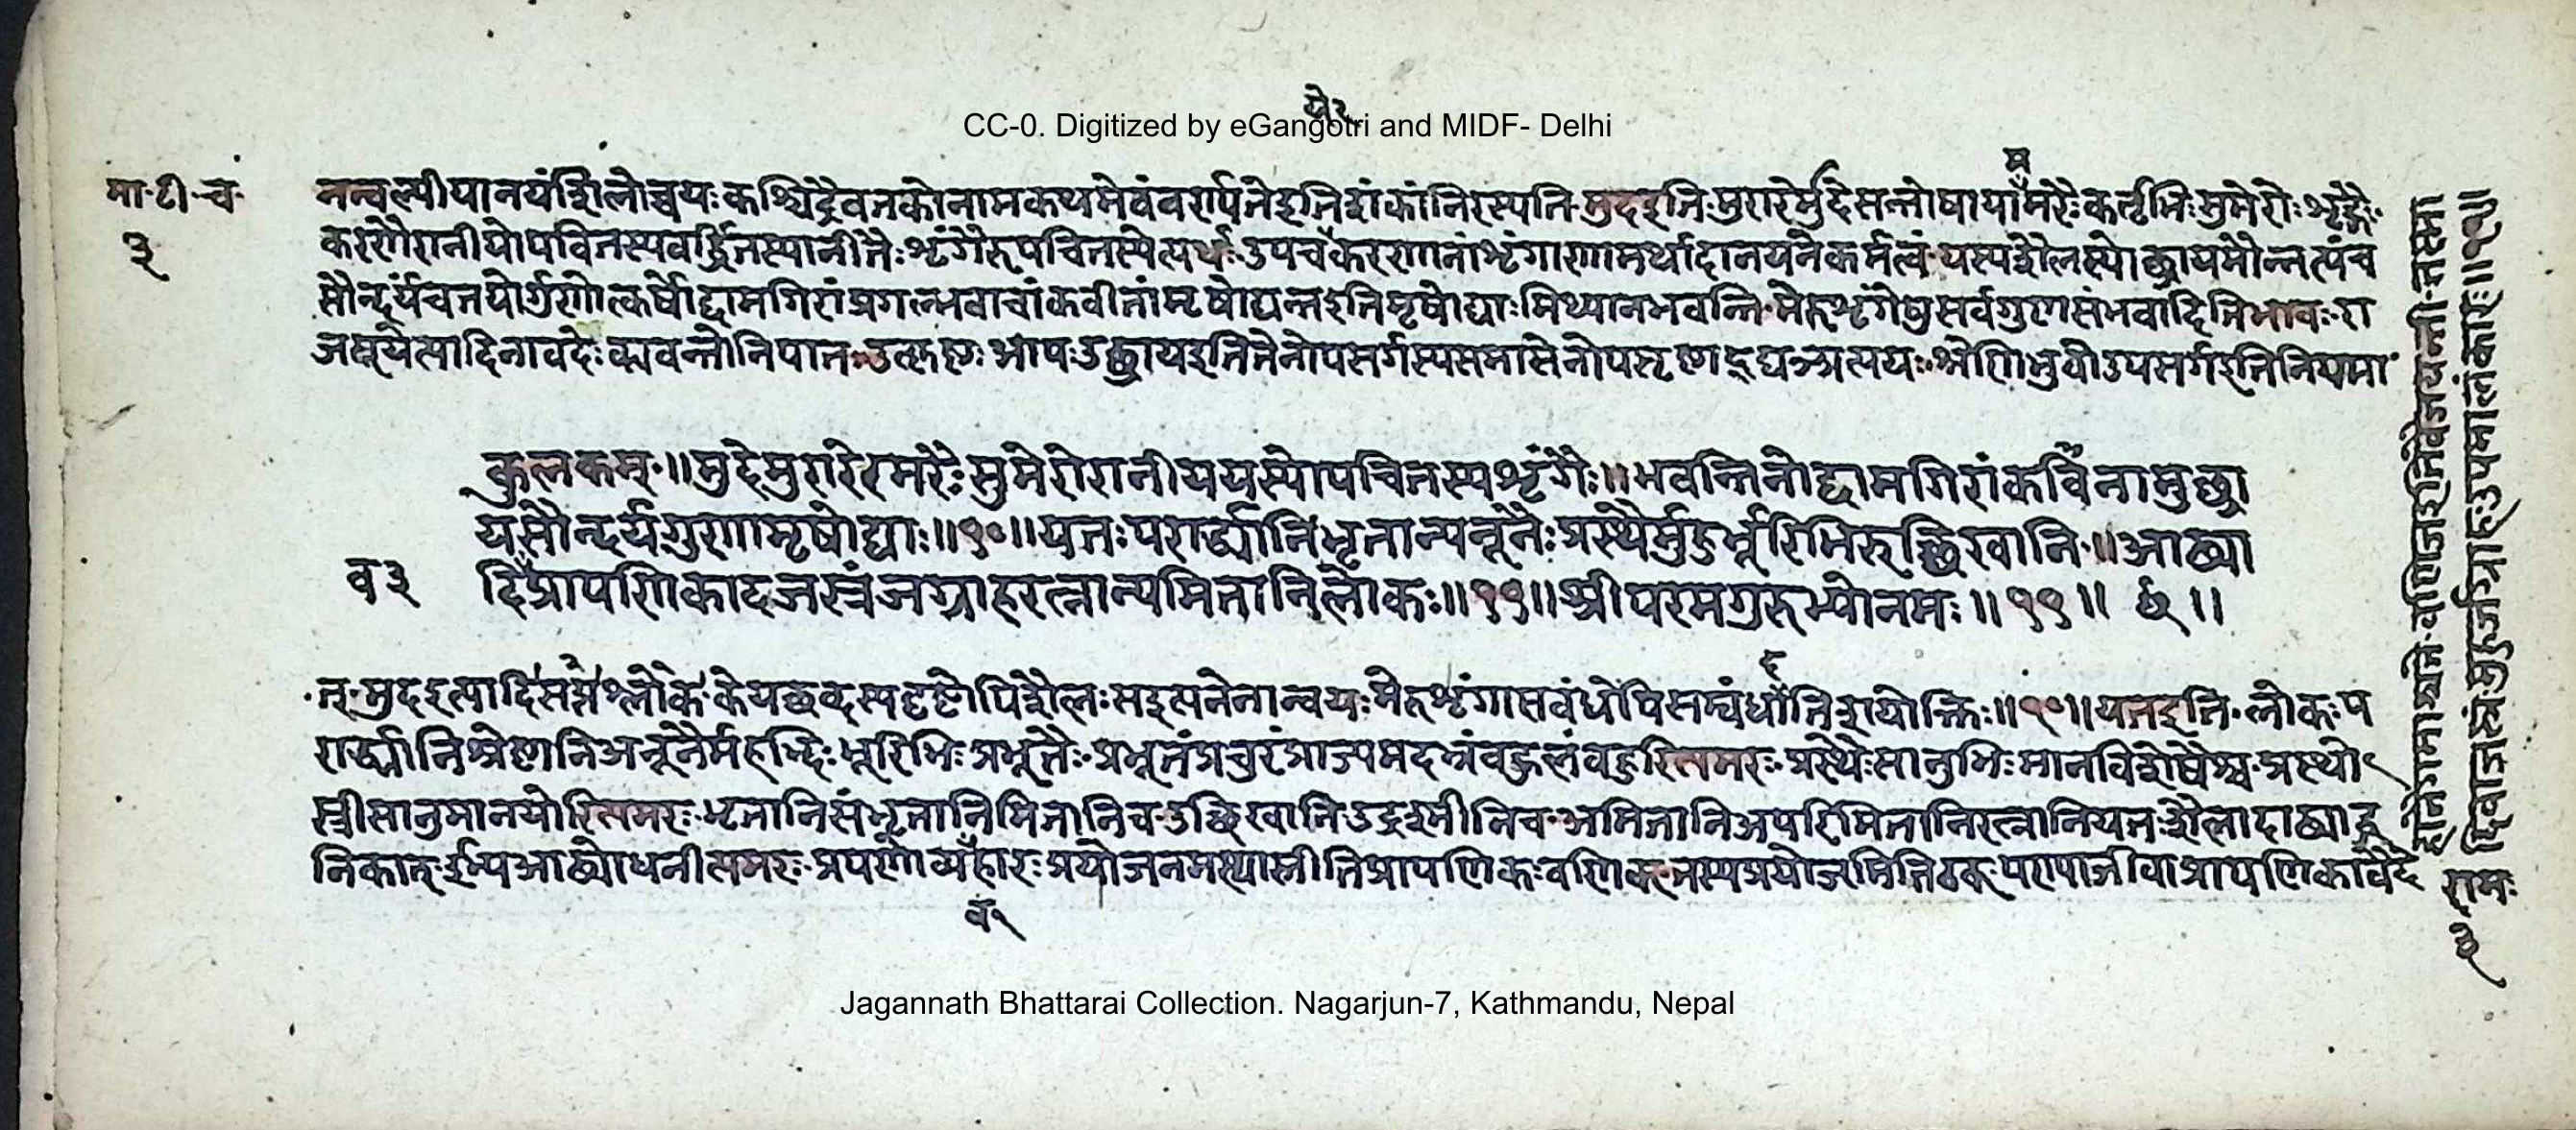 ये२
CC-0. Digitized by eGangotri and MIDF- Delhi
मा·टी·च·
३
नन्वल्पीयानयं शिलोच्चयः कश्चिद्रैवतको नाम कथमेवं वर्ण्यते इति शंकां निरस्यति·मुदइति·मुरारेर्मुदे सन्तोषाया मरैः कर्तृभिः सुमेरोः शृङ्गैः·
करणैरानीयोपचितस्य वर्द्धितस्यानीतैः शृंगैरुपचितस्येत्यर्थः·उपचये करणानां शृंगाणामर्थादानयने कर्मत्वं·यस्य शैलस्योच्छ्रायमौन्नत्यं च
सौन्दर्यं च तयोर्गुणोत्कर्षोद्दामगिरां प्रगल्भवाचां कवीनां मृषोद्यन्त इति मृषोद्याः मिथ्या न भवन्ति·मेरुशृंगेषु सर्वगुणसंभवादिति भावः·रा
जसूयेत्यादिना वदेः क्यबन्तो निपातः·उत्कृष्टः श्रायः उच्छ्राय इति तेनोपसर्गस्य समासे नोपसृष्टाद् घञ्प्रत्ययः·श्रिणीभुवोऽनुपसर्ग इति नियमा
कुलकम्·॥मुदे मुरारेरमरैः सुमेरोरानीय यस्योपचितस्य शृंगैः॥भवन्ति नोद्दामगिरां कविनामुच्छ्रा
यसौन्दर्यगुणा मृषोद्याः॥१०॥यतः परार्द्ध्यानि भृतान्यनूनैः प्रस्थैर्मुहुर्भूरिभिरुच्छिखानि·॥आढ्या
व ३
दिप्रापणिकादजस्रं जग्राह रत्नान्यमितानि लोकः॥११॥श्रीपरमगुरुभ्यो नमः॥११॥ छ ॥
त्·मुदइत्यादि सप्तश्लोके·केयच्छब्दस्य दृष्टोपि शैलः सइत्यनेनान्वयः मेरुशृंगासंबंधेपि सम्बंधातिशयोक्तिः॥१०॥यतइति·लोकः प
रार्द्ध्यानि श्रेष्ठानि अनूनैर्महद्भिः भूरिभिः प्रभूतैः·प्रभूतं प्रचुरं प्राज्यमदभ्रं बहुलं बह्वित्यमरः·प्रस्थैः सानुभिः मानविशेषैश्च·प्रस्थो
स्त्री सानुमानयोरित्यमरः·भृतानि संभृतानि मितानि च·उच्छिखानि उद्रश्मीनि च·अमितानि अपरिमितानि रत्नानि यतः शैलादाढ्याद्ध
निकात्·इभ्य आढ्यो धनीत्यमरः·प्रपणो व्यहारः प्रयोजनमस्यास्तीति प्रापणिकः वणिक्·तस्य प्रयोजमिति ठक्·पण्याजीवा प्रापणिका वैदे
व१
रामः
३
Jagannath Bhattarai Collection. Nagarjun-7, Kathmandu, Nepal